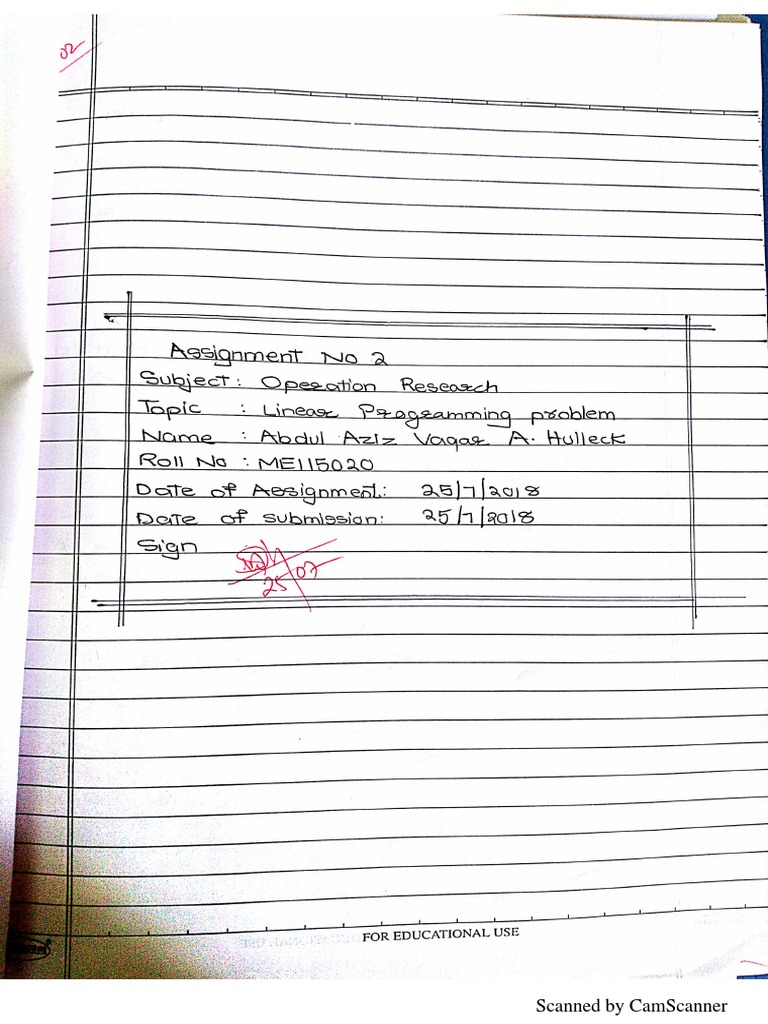 02
Assignment No 2
Subject: Operation Research
Topic : Linear Programming problem
Name : Abdul Aziz Vaqar A. Hulleck
Roll No : ME115020
Date of Assignment: 25/7/2018
Date of submission: 25/7/2018
Sign
25/07
FOR EDUCATIONAL USE
Scanned by CamScanner